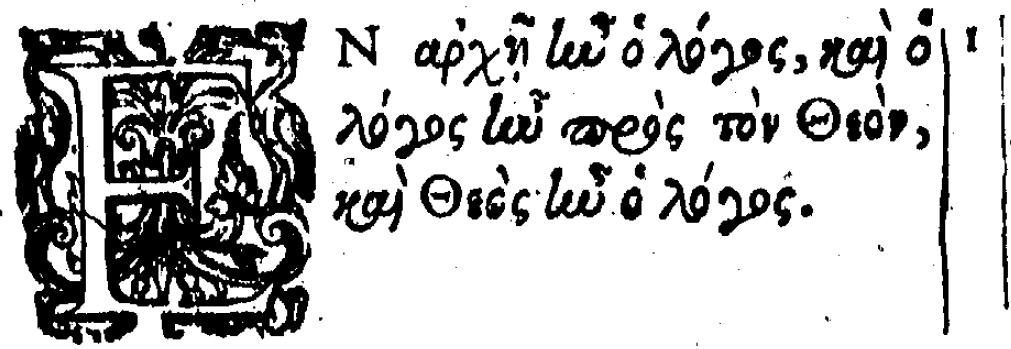 ΕΝ ἀρχῇ ἦν ὁ λόγος, καὶ ὁ 1
λόγος ἦν πρὸς τὸν Θεὸν,
καὶ Θεὸς ἦν ὁ λόγος.